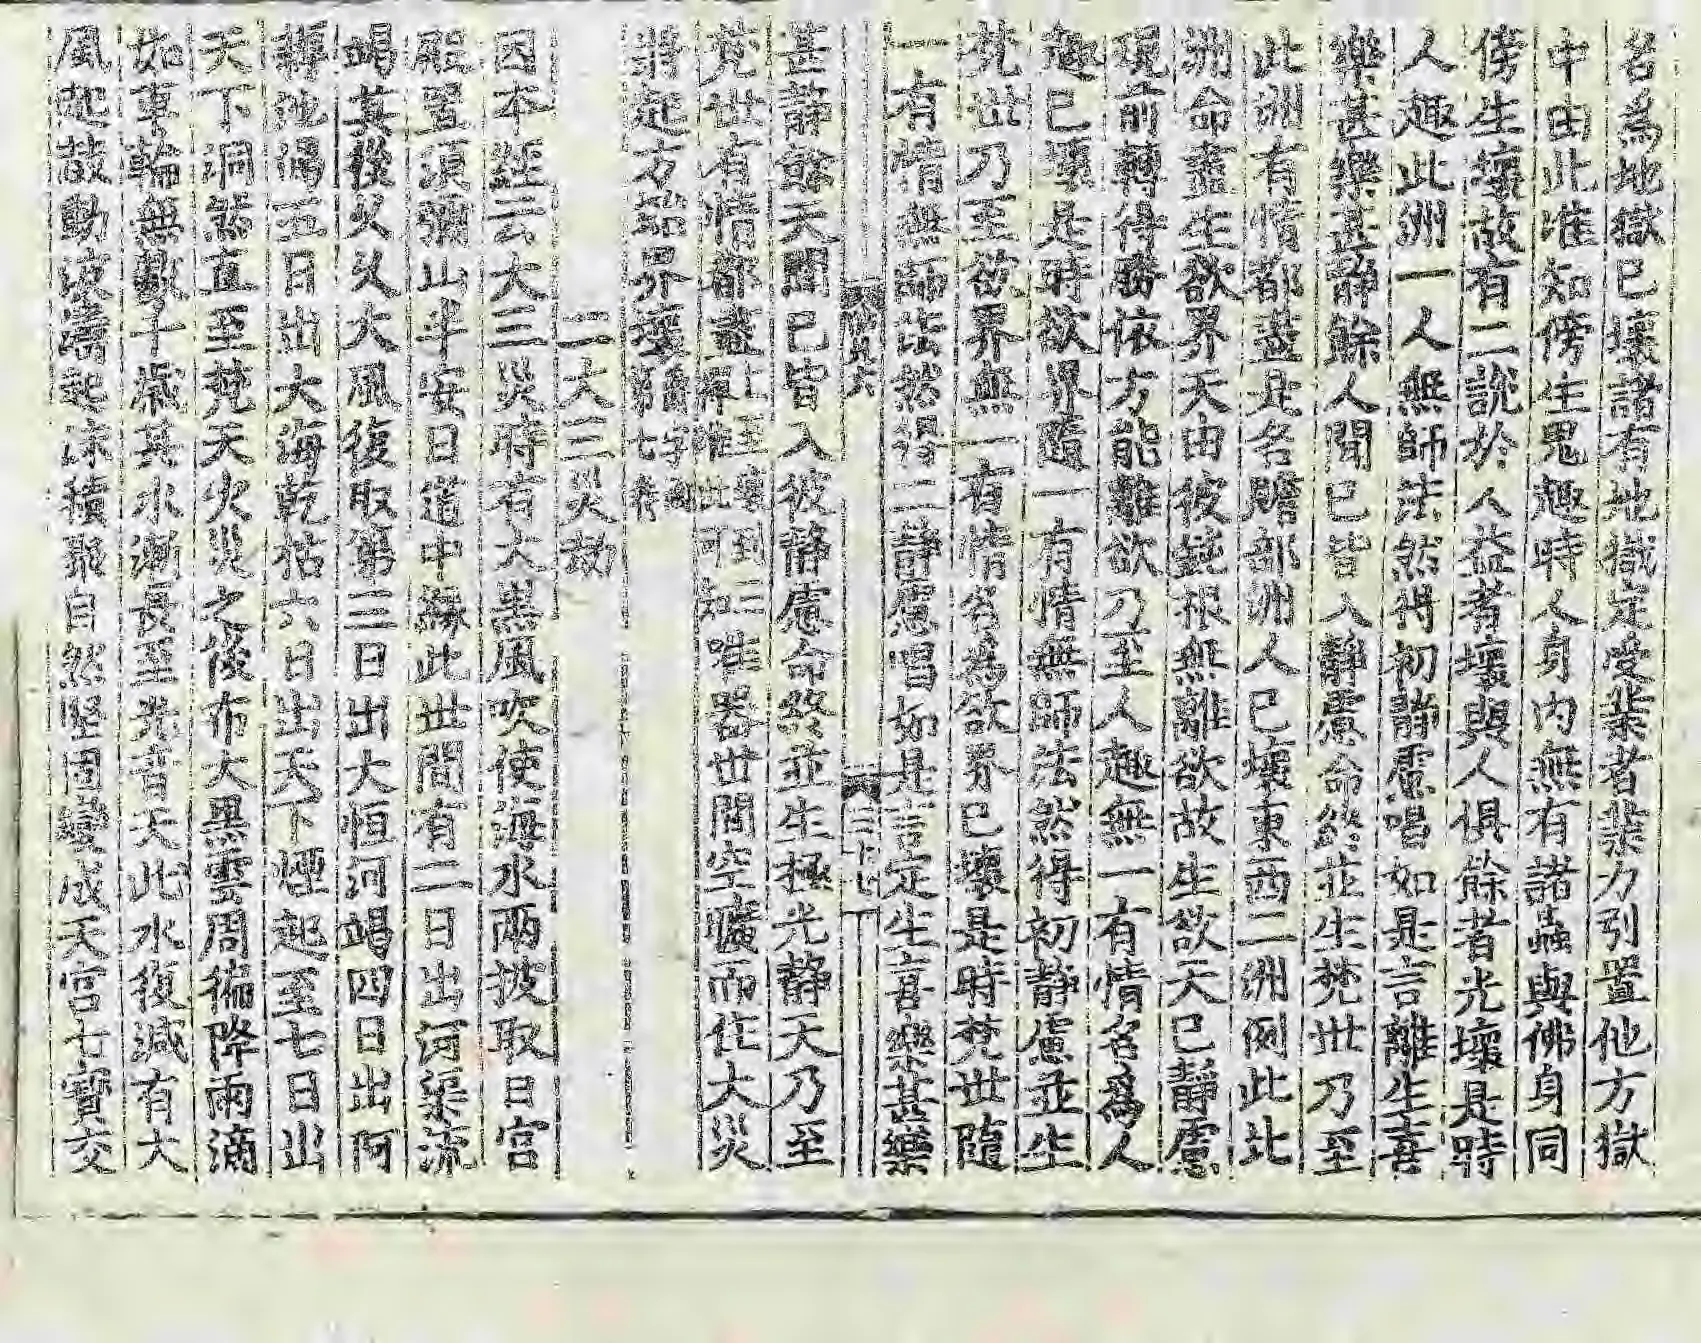 名為地獄已壞諸有地獄定受業者業力引置他方獄
中由此准知傍生鬼趣時人身內無有諸蟲與佛身同
傍生壞故有二說於人益者壞與人俱餘者先壞是時
人趣此洲一人無師法然得初靜慮唱如是言離生喜
樂甚樂甚靜餘人聞已皆入靜慮命終並生梵世乃至
此洲有情都盡是名贍部洲人已壞東西二洲例此北
洲命盡生欲界天由彼鈍根無離欲故生欲天已靜慮
現前轉得勝依方能離欲乃至人趣無一有情名為人
趣已壞是時欲界隨一有情無師法然得初靜慮並生
梵世乃至欲界無一有情名為欲界已壞是時梵世隨
一有情無師法然得二靜慮唱如是言定生喜樂甚樂
三十七
甚靜餘天聞已皆入彼靜慮命終並生極光靜天乃至
梵世有情都盡唯器世間空曠而住大災
將起方始界壞
二大三災劫
因本經云大三災時有大黑風吹使海水兩披取日宮
殿置須彌山半安日道中緣此世間有二日出河渠流
竭其後久久大風復取第三日出大恒河竭四日出阿
耨池竭五日出大海乾枯六日出天下煙起至七日出
天下洞然直至梵天火災之後布大黑雲周徧降雨滴
如車輪無數千歲其水漸長至光音天此水復減有大
風起鼓動波濤起沫積聚自然堅固變成天宮七寶交